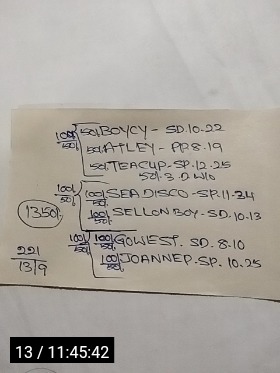 100/50/ 50/ BOYCY - SD.10-22
50/ ATLEY - PP.8-19
50/ TEACUP - SP.12-25
50/- 3 D W/O
100/50/ 100/50/ SEA DISCO - SP.11-34
13501- 100/50/ SELLON BOY - SD.10-13
100/50/ 100/50/ GOWEST. SD. 8-10
221 100/50/ JOANNEP. SP. 10.25
1319
13 / 11:45:42